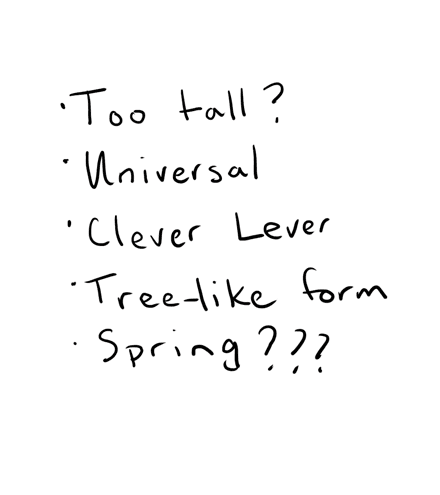 · Too tall?
· Universal
· Clever Lever
· Tree-like form
· Spring???